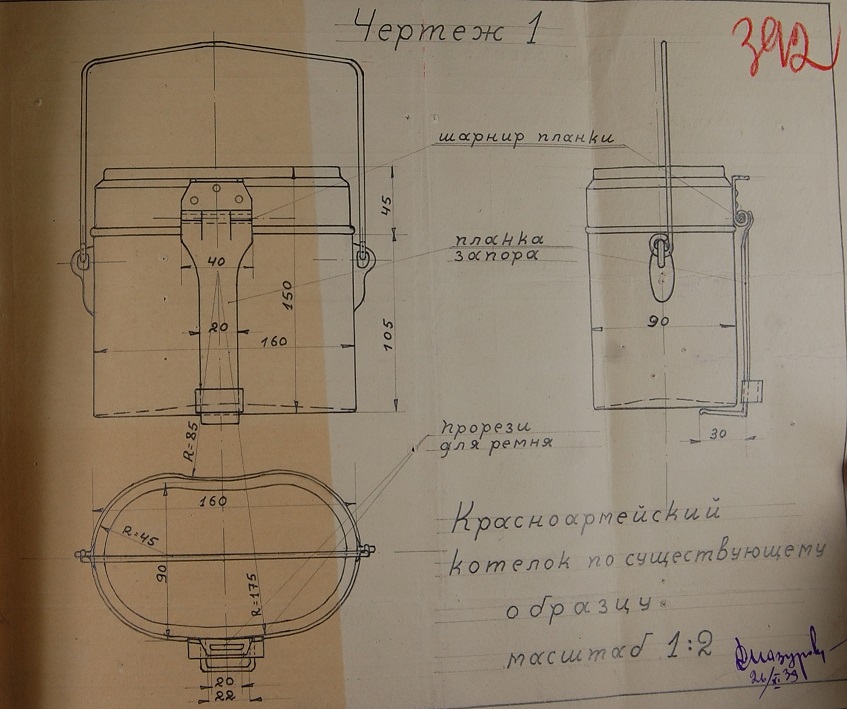 Чертеж 1
392
шарнир планки
планка
запора
45
40
150
20
160
105
90
30
R=85
прорези
для ремня
160
R=45
90
R=175
20
22
Красноармейский
котелок по существующему
образцу.
масштаб 1:2